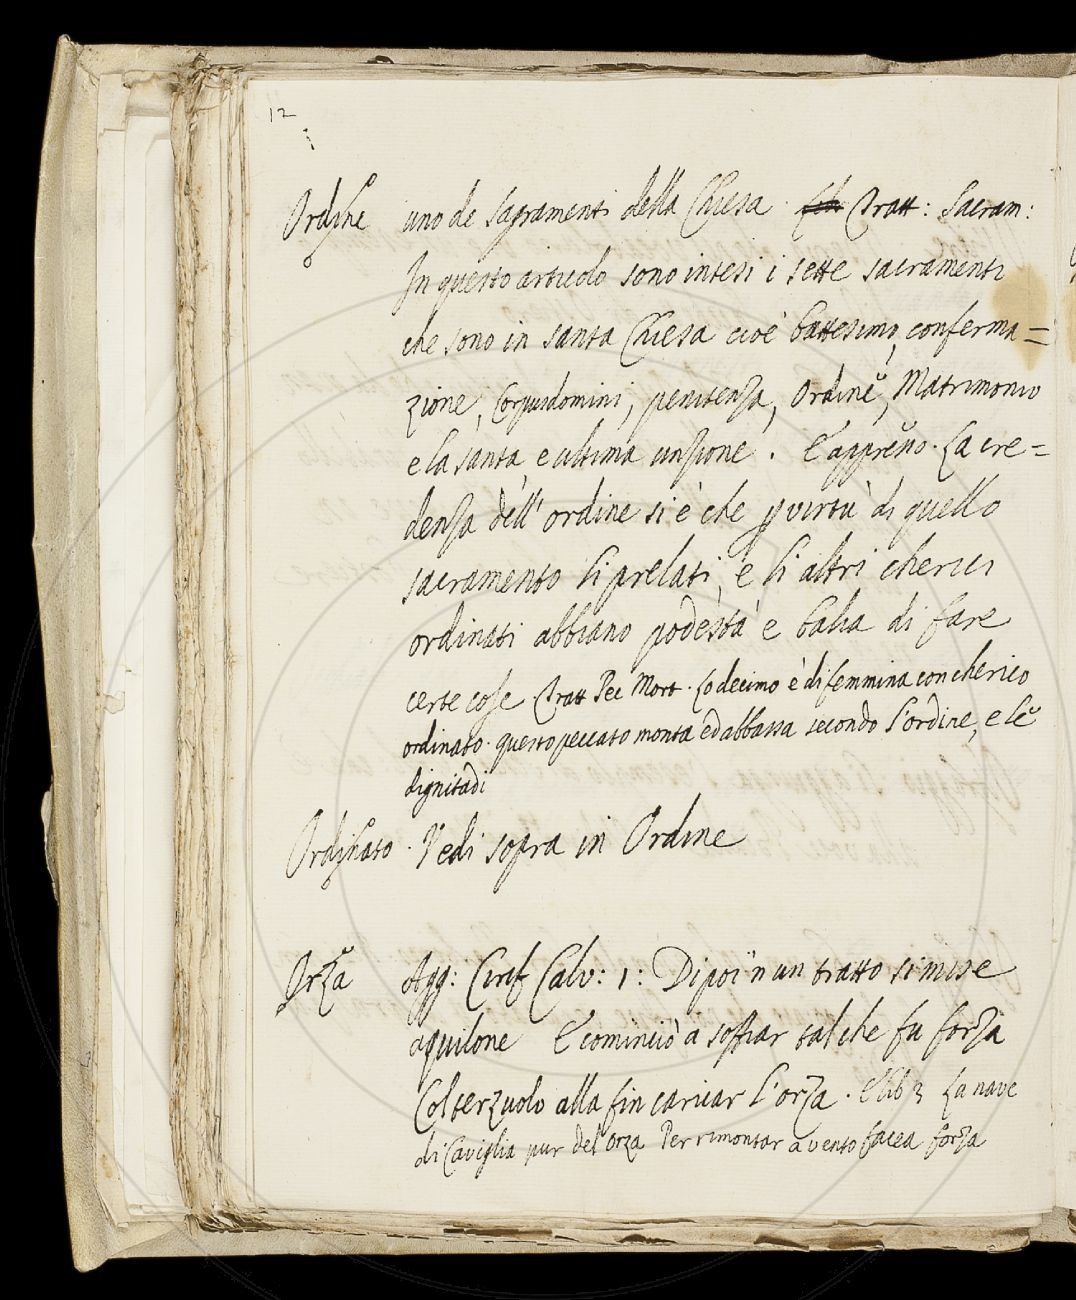 12
Ordine uno de sagramenti della Chiesa. Tratt: Sacram:
In questo articolo sono intesi i sette sacramenti
che sono in santa Chiesa cioè battesimo, conferma=
zione, Corpusdomini, penitenza, Ordine, Matrimonio
e la santa, e ultima unzione. E appresso. La cre=
denza dell'ordine si è che p virtù di quello
sacramento li prelati, e li altri cherici
ordinati abbiano podestà e balia di fare
certe cose Tratt Pec Mort. Lo decimo è di femmina con cherico
ordinato. questo peccato monta ed abbassa secondo l'ordine, e le
dignitadi
Ordinato. Vedi sopra in Ordine
Orza Agg: Ciriff Calv: 1: Dipoi 'n un tratto si mise
aquilone E cominciò a soffiar tal che fu forza
Col terzuolo alla fin caricar l'orza. E lib 3 La nave
di Caviglia pur del orza Per rimontar a vento facea forza